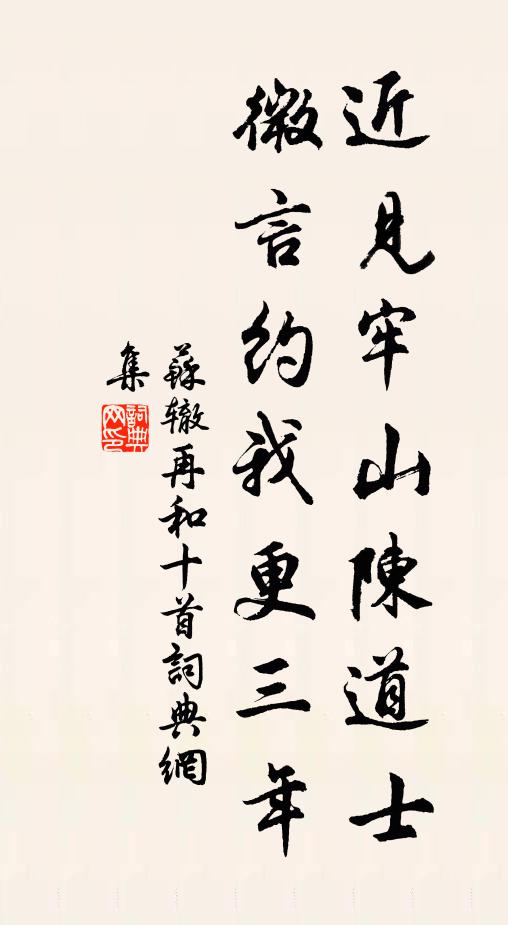 近見牢山陳道士
微言約我更三年
蘇辙再和十首詞典網
集
詞典网印